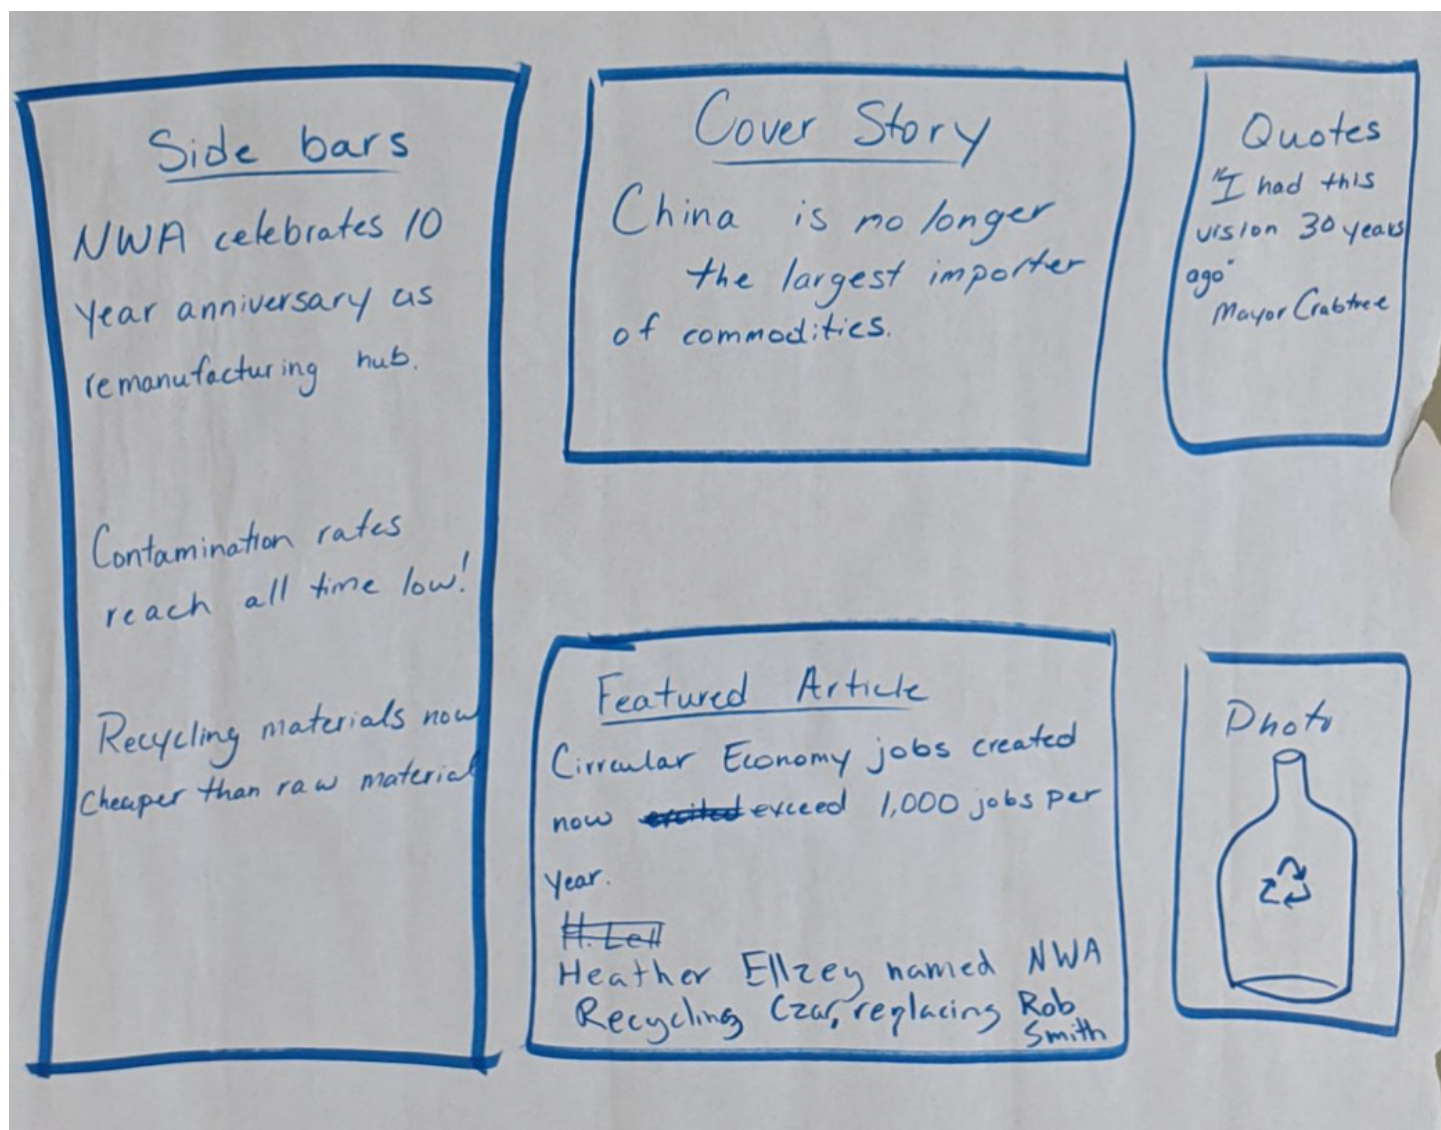 Side bars
NWA celebrates 10
year anniversary as
remanufacturing hub.
Contamination rates
reach all time low!
Recycling materials now
cheaper than raw material
Cover Story
China is no longer
the largest importer
of commodities.
Quotes
"I had this
vision 30 years
ago"
Mayor Crabtree
Featured Article
Circular Economy jobs created
now excited exceed 1,000 jobs per
year.
H. Lell
Heather Ellzey named NWA
Recycling Czar, replacing Rob
Smith
Photo